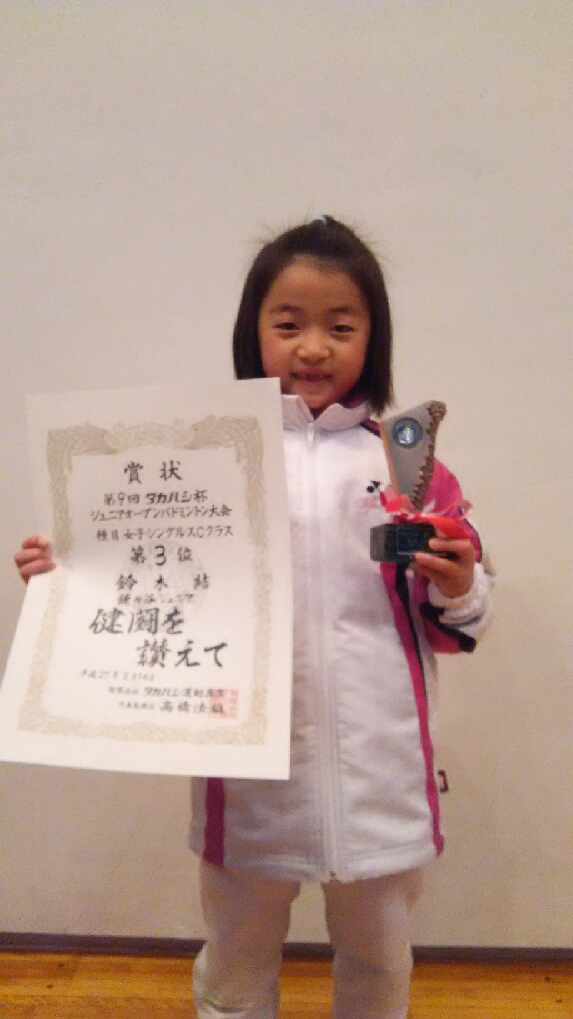 賞状
第9回 タカハシ杯
ジュニアオープンバドミントン大会
種目 女子シングルスCクラス
第3位
鈴木 結
ジュニア
健闘を
讃えて
平成27年2月14日
有限会社 タカハシ運動具店
高橋法雄